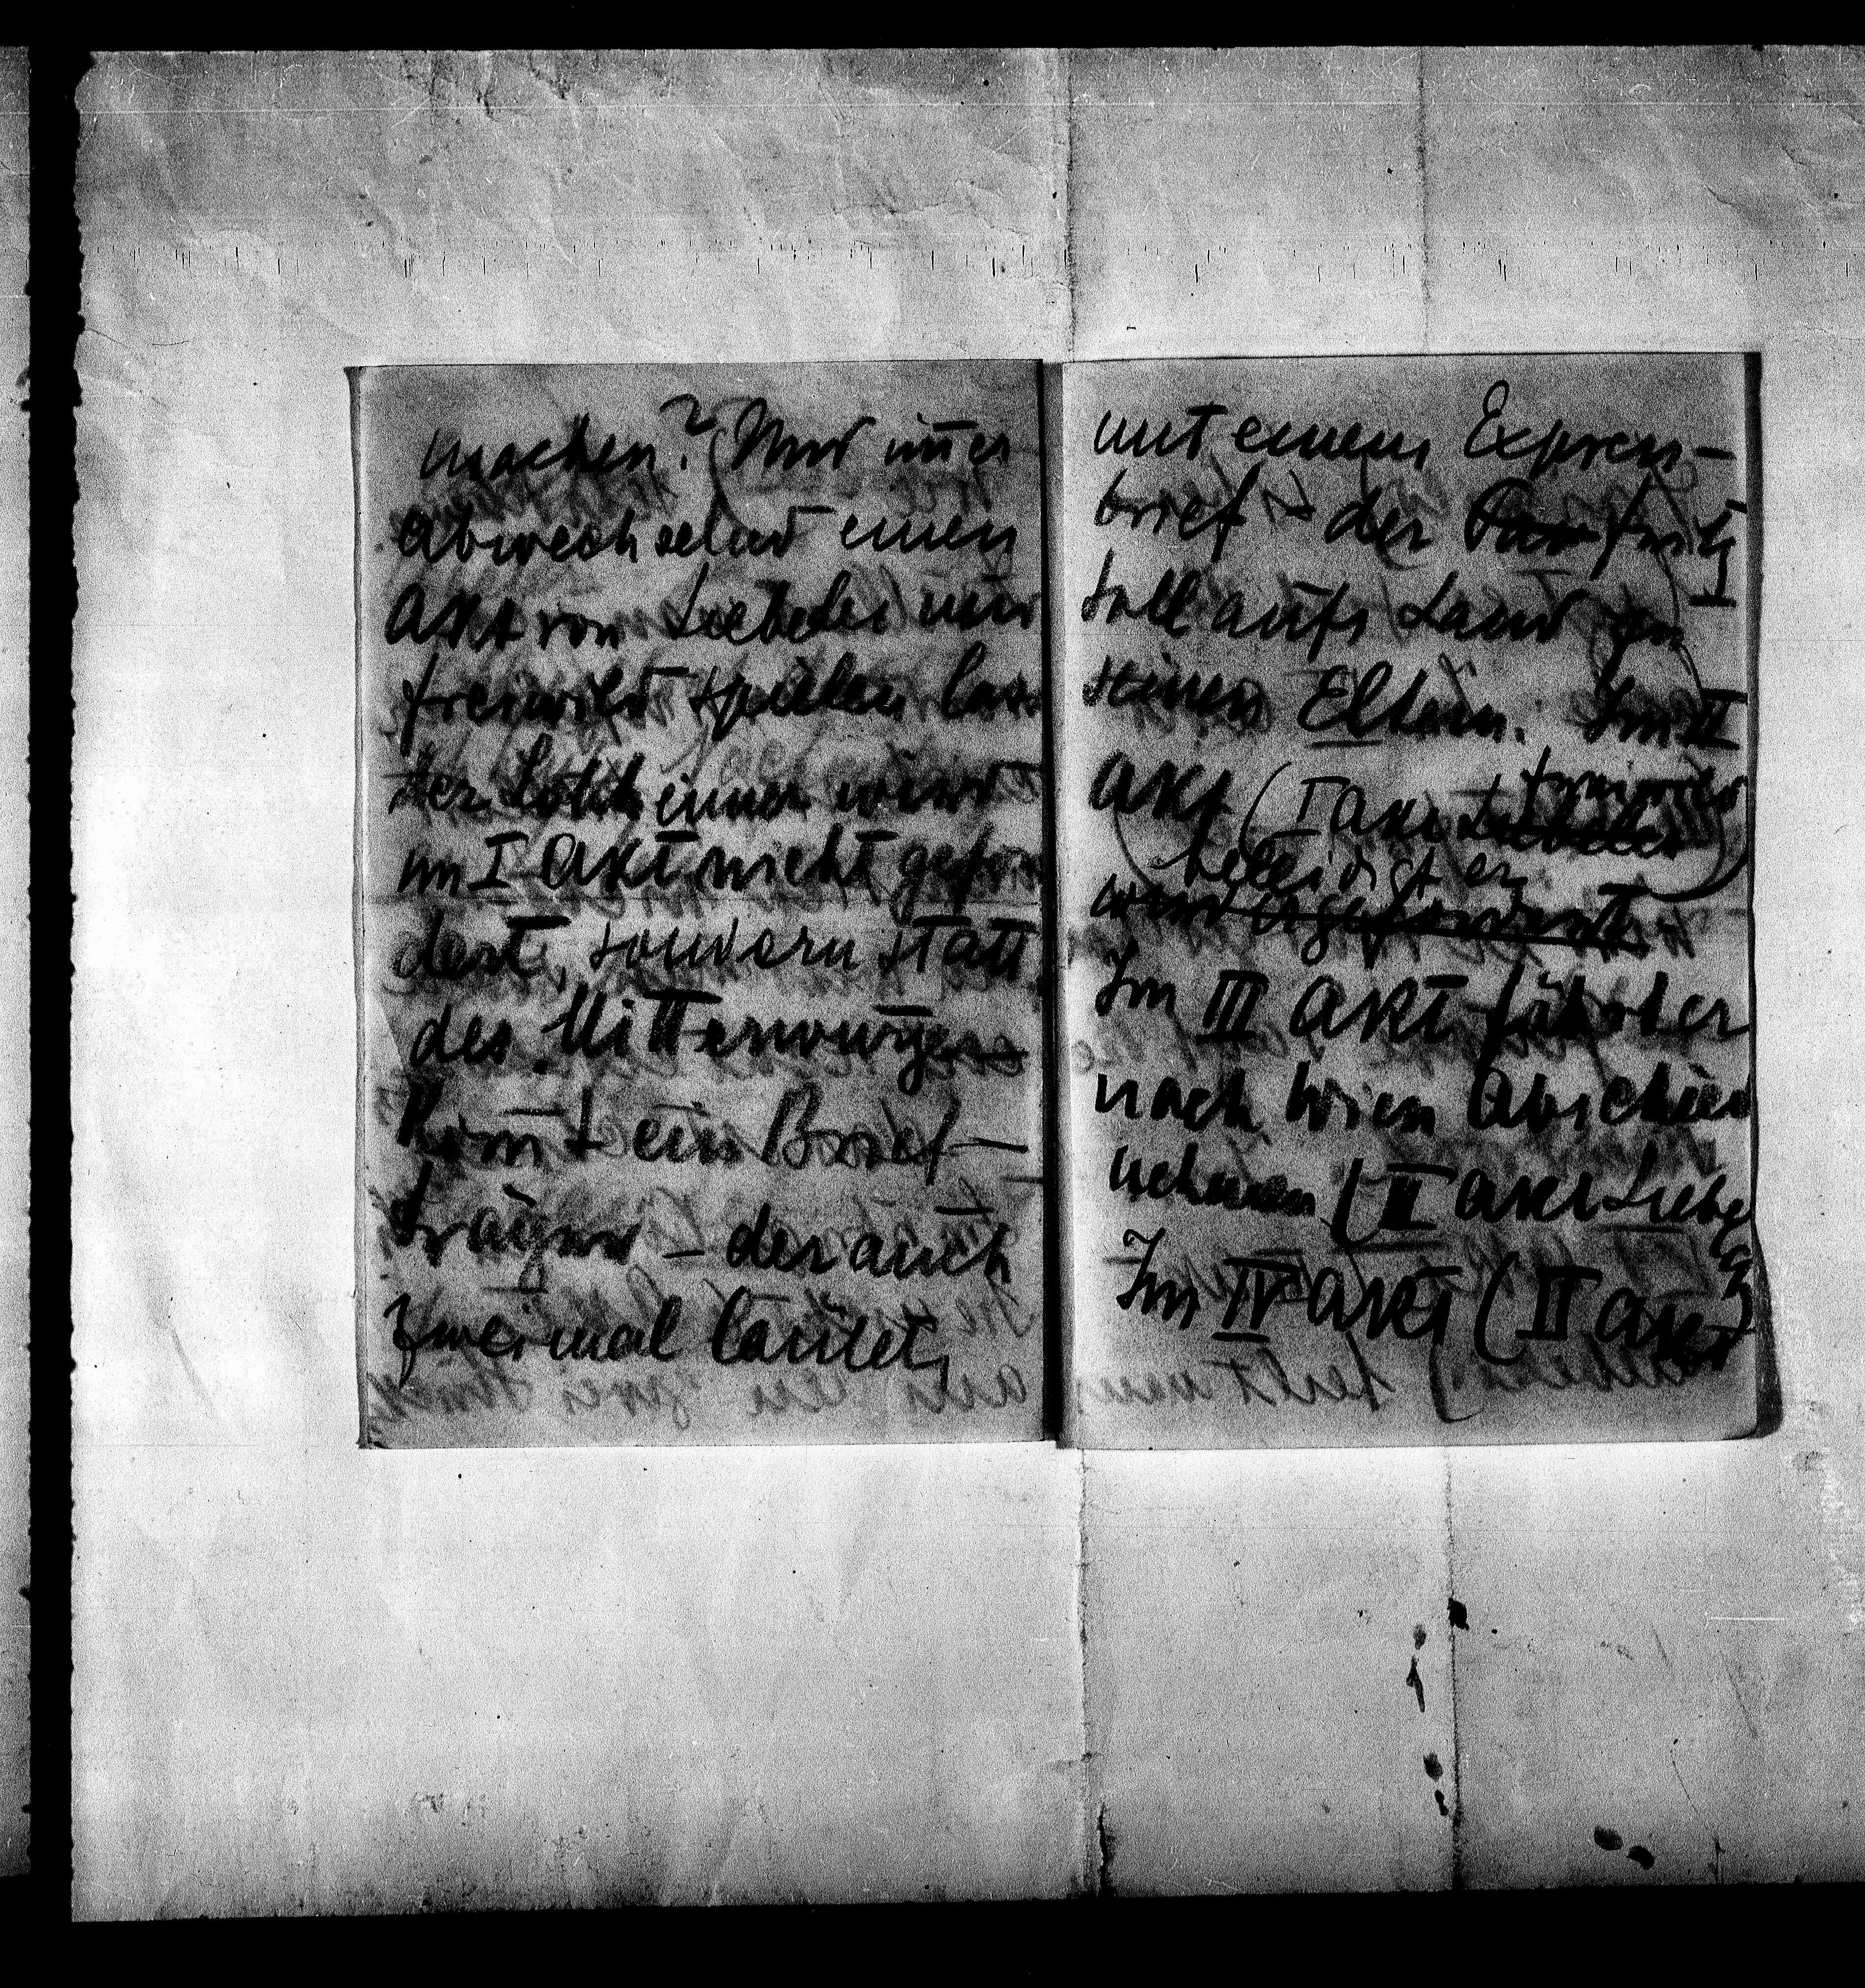 machen? Und im̅er
abwechselnd einen
Akt von Liebelei und
Freiwild spielen lass
der Lobheimer wird
im I Akt nicht gefor
dert, sondern statt
des Mitterwurzers
kom̅t ein Brief-
träger – der auch
zweimal läutet,
mit einem Express-
brief – der Fritz
soll aufs Land zu
seinen Eltern. Im II
Akt (I Akt Freiwild
beleidigt er
wird er gefordert
Im III Akt fährt er
nach Wien Abschied
nehmen (II Akt Liebe
Im IV Akt (II Akt